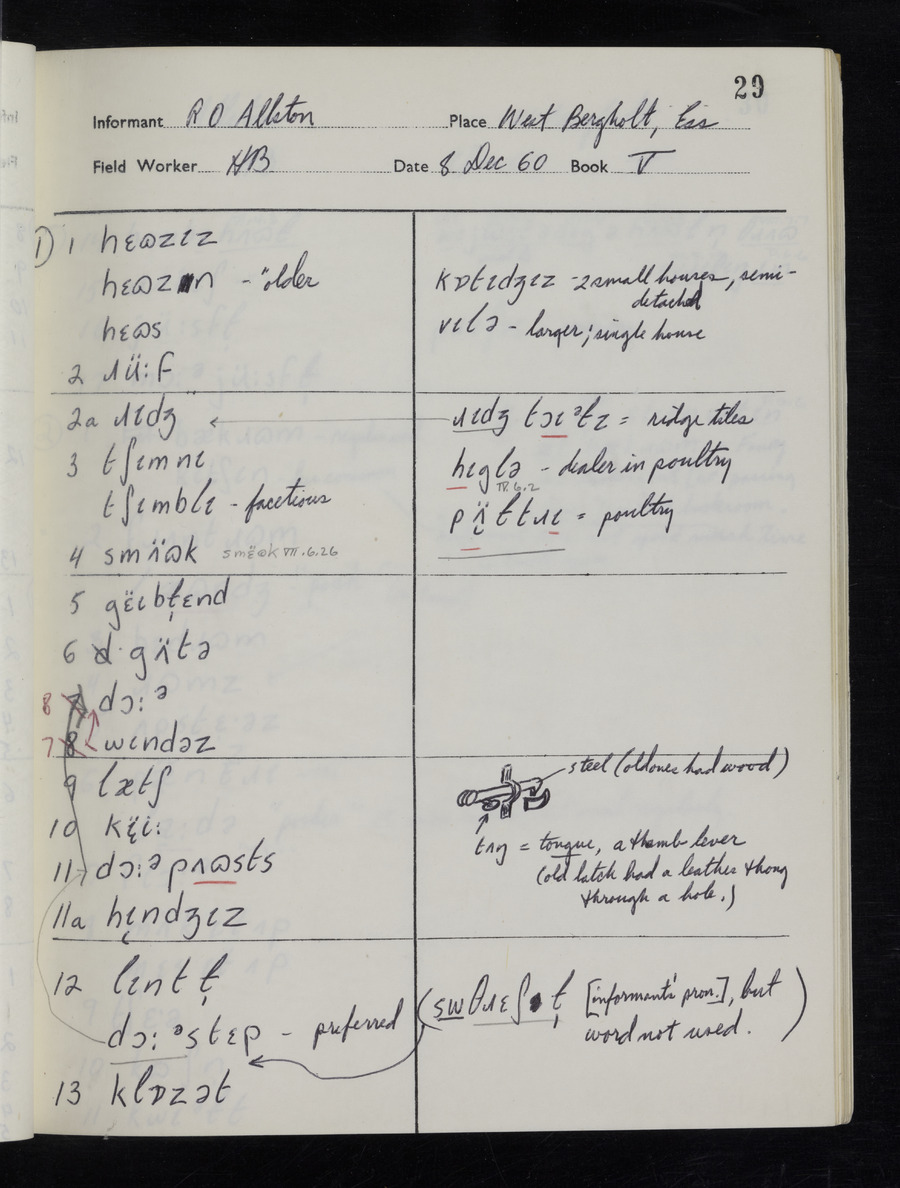 29
Informant R O Allston Place West Bergholt, Ess
Field Worker HB Date 8 Dec 60 Book V
1) 1 hɛɷzɪz
hɛɷzn - "older
kɒtɪdʒɪz - 2 small houses, semi-
detached
hɛɷs
vɪlə - larger; single house
2 ɹü:f
2a ɹɪdʒ
ɹɪdʒ tɔɪᵊɫz = ridge tiles
3 tʃɪmnɪ
hɪglə - dealer in poultry
IV.6.2
tʃɪmblɪ - facetious
pʌ̈ɫtɹɪ = poultry
4 smʌ̈ɷk smëɷk VII.6.26
5 gëɪbɫ̩ɛnd
6 gʌ̈tə
8 7 dɔ:ᵊ
7 8 wɪndəz
steel (old ones had wood)
9 lætʃ
10 kë̞i:
tʌŋ = tongue, a thumb lever
11 dɔ:ᵊ pʌɷsts
(old latch had a leather thong
through a hole.)
11a hɪ̞ndʒɪz
12 lɪntɫ̩
(swθɹɛʃɫ̩ [informant's pron.], but
dɔ:ᵊstɛp - preferred
word not used.)
13 klɒzət